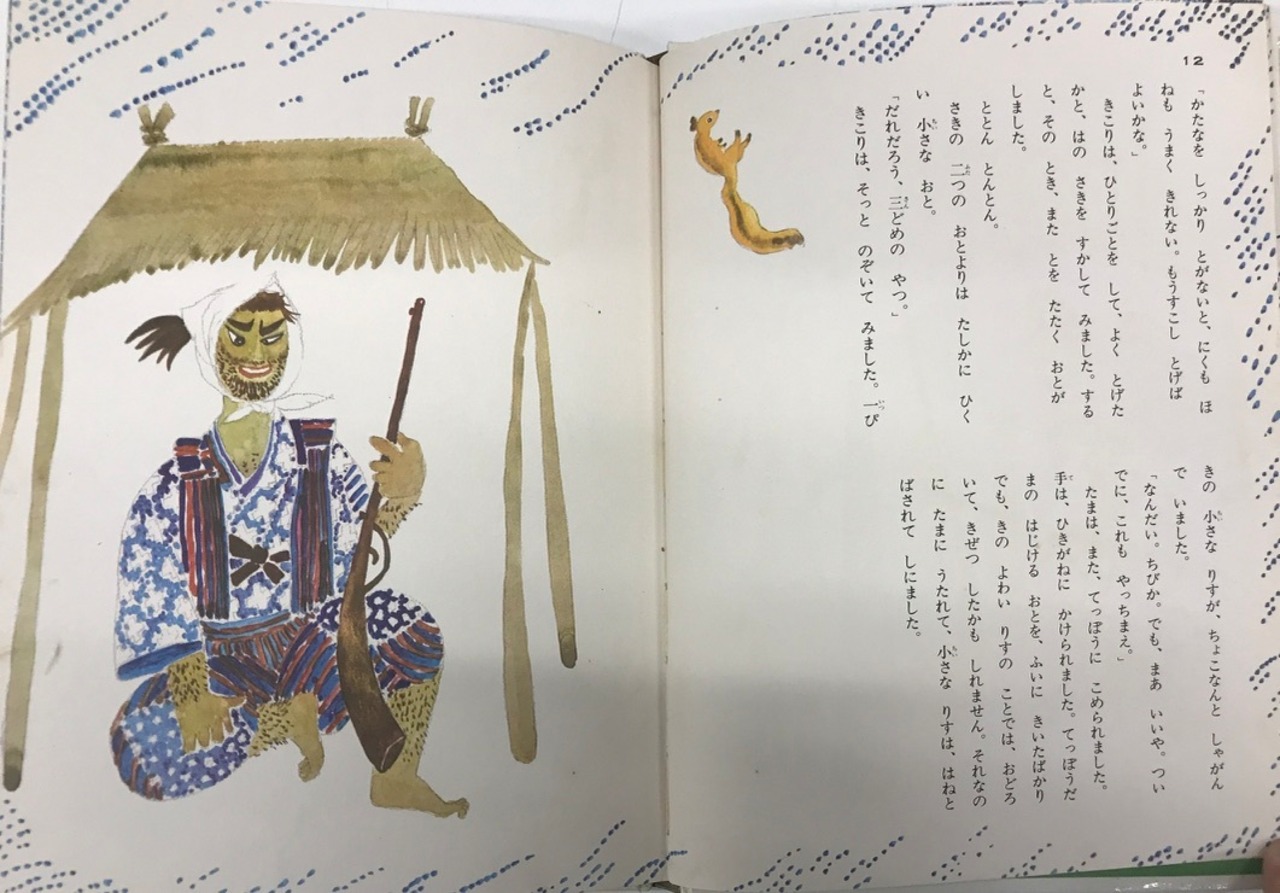 12
「かたなを しっかり とがないと、にくも ほ
ねも うまく きれない。もうすこし とげば
よいかな。」
きこりは、ひとりごとを して、よく とげた
かと、はの さきを すかして みました。する
と、その とき、また とを たたく おとが
しました。
ととん とんとん。
さきの 二つの おとよりは たしかに ひく
い 小さな おと。
「だれだろう、三どめの やつ。」
きこりは、そっと のぞいて みました。一ぴ
きの 小さな りすが、ちょこなんと しゃがん
で いました。
「なんだい。ちびか。でも、まあ いいや。つい
でに、これも やっちまえ。」
たまは、また、てっぽうに こめられました。
手は、ひきがねに かけられました。てっぽうだ
まの はじける おとを、ふいに きいたばかり
でも、きの よわい りすの ことでは、おどろ
いて、きぜつ したかも しれません。それなの
に たまに うたれて、小さな りすは、はねと
ばされて しにました。